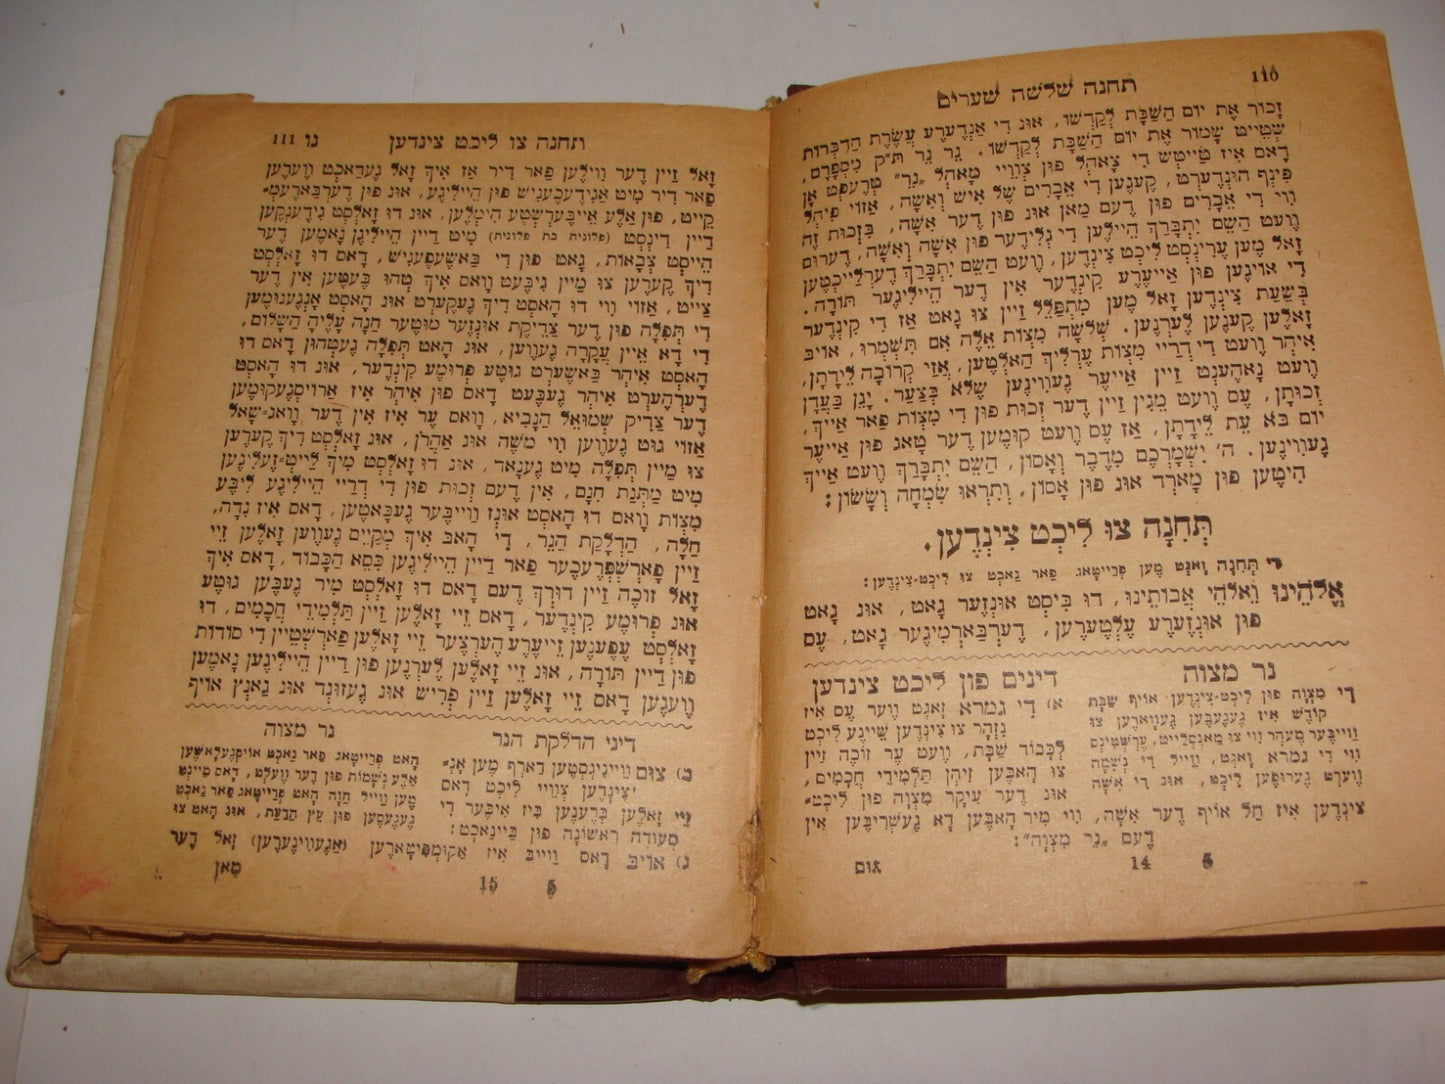 תחנה שלשה שערים 110
זָכוֹר אֶת יוֹם הַשַׁבָּת לְקַדְשׁוֹ, אוּנ דִי אַנְדֶערֶע עֲשֶׂרֶת הַדִבְּרוֹת
שְׁטֵייט שָׁמוֹר אֶת יוֹם הַשַׁבָּת לְקַדְשׁוֹ. נֵר נֵר תּ"ק מִסְפָּרָם,
דָאס אִיז טַייטְשׁ דִי צָאהְל פוּן צְוֵויי מָאהְל „נֵר" טְרֶעפְט אָן
פִינְף הוּנְדֶערְט, קֶעגֶען דִי אֵבָרִים שֶׁל אִישׁ וְאִשָׁה, אַזוֹי פִיהְל
וִוי דִי אֵבָרִים פוּן דֶעם מַאן אוּנ פוּן דֶער אִשָׁה, בִּזְכוּת זֶה
וֶועט הַשֵׁם יִתְבָּרַךְ הֵיילֶען דִי גְלִידֶער פוּן אִשָׁה וְאִשָׁה, דֶערוּם
זָאל מֶען עֶרִינְסְט לִיכְט צִינְדֶען, וֶועט הַשֵׁם יִתְבָּרַךְ דֶערְלַייכְטֶען
דִי אוֹיגֶען פוּן אַייעֶרֶע קִינְדֶער אִין דֶער הֵיילִיגֶער תּוֹרָה.
בִּשְׁעַת צִינְדֶען זָאל מֶען מִתְפַּלֵל זַיין צוּ גָאט אַז דִי קִינְדֶער
זָאלֶען קֶענֶען לֶערְנֶען. שְׁלֹשָׁה מִצְוֹת אֵלֶה אִם תִּשְׁמְרוּ, אוֹיבּ
אִיהְר וֶועט דִי דְרַיי מִצְוֹת עֶרְלִיךְ הַאלְטֶען, אֲזַי קְרוֹבָה לֵידָתָן,
וֶועט נָאהֶענְט זַיין אַייעֶר גֶעוִוינֶען שֶׁלֹא בְּצַעַר. יָגֵן בַּעֲדָן
זְכוּתָן, עֶס וֶועט מֵגִין זַיין דֶער זְכוּת פוּן דִי מִצְוֹת פַאר אַייךְ,
יוֹם בֹּא עֵת לֵידָתָן, אַז עֶס וֶועט קוּמֶען דֶער טָאג פוּן אַייעֶר
גֶעוִוינֶען. ה' יִשְׁמָרְכֶם מִדֶבֶר וְאָסוֹן, הַשֵׁם יִתְבָּרַךְ וֶועט אַייךְ
הִיטֶען פוּן מָארְד אוּנ פוּן אָסוֹן, וְתִרְאוּ שִׂמְחָה וְשָׂשׂוֹן:
תְּחִנָה צוּ לִיכְט צִינְדֶען.
די תְּחִנָה זָאגְט מֶען פְרַייטָאג פַאר נַאכְט צוּ לִיכְט־צִינְדֶען:
אֱלֹהֵינוּ וֵאלֹהֵי אֲבוֹתֵינוּ, דוּ בִּיסְט אוּנְזֶער גָאט, אוּנ גָאט
פוּן אוּנְזֶערֶע עֶלְטֶערֶען, דֶערְבַּארְמִיגֶער גָאט, עֶס
נר מצוה
דִי מִצְוָה פוּן לִיכְט־צִינְדֶען אוֹיף שַׁבָּת
קוֹדֶשׁ אִיז גֶעגֶעבֶּען גֶעוָוארֶען צוּ
וַוייבֶּער מֶעהֶר וִוי צוּ מַאנְסְלַייט, עֶרְשְׁטֶינְס
וִוי דִי גְמָרָא זָאגְט, וַוייל דִי נְשָׁמָה
וֶוערְט גֶערוּפֶען לִיכְט, אוּנ דִי אִשָׁה
דינים פון ליכט צינדען
א) דִי גְמָרָא זָאגְט וֶוער עֶס אִיז
נִזְהָר צוּ צִינְדֶען שֵׁיינֶע לִיכְט
לִכְבוֹד שַׁבָּת, וֶועט עֶר זוֹכֶה זַיין
צוּ הָאבֶּען זִיהְן תַּלְמִידֵי חֲכָמִים,
אוּנ דֶער עִיקַר מִצְוָה פוּן לִיכְט־
צִינְדֶען אִיז חַל אוֹיף דֶער אִשָׁה, וִוי מִיר הָאבֶּען דָא גֶעשְׁרִיבֶּען אִין
דֶעם „נֵר מִצְוָה":
5 14 צום
ותחנה צו ליכט צינדען נו 111
זָאל זַיין דֶער וִוילֶען פַאר דִיר אַז אִיךְ זָאל גֶעדַאכְט וֶוערֶען
פַאר דִיר מִיט אַגִידֶעכֶענִישׁ פוּן הֵיילִיגֶע, אוּנ פוּן דֶערְבַּארֶעמ־
קֵייט, פוּן אַלֶע אֵייבֶּערְשְׁטֶע הִימְלֶען, אוּנ דוּ זָאלְסְט גִידֶענְקֶען
דַיין דִינְסְט (פלונית בת פלונית) מִיט דַיין הֵיילִיגֶן נָאמֶען דֶער
הֵייסְט צְבָאוֹת, גָאט פוּן דִי בַּאשֶׁעפֶענִישׁ, דָאס דוּ זָאלְסְט
דִיךְ קֶערֶען צוּ מַיין גִיבֶּעט וָואס אִיךְ טְהוּ בֶּעטֶען אִין דֶער
צַייט, אַזוֹי וִוי דוּ הָאסְט דִיךְ גֶעקֶערְט אוּנ הָאסְט אָנְגֶענוּמֶען
דִי תְּפִלָה פוּן דֶער צַדֵיקֶת אוּנְזֶער מוּטֶער חַנָה עָלֶיהָ הַשָׁלוֹם,
דִי דָא אֵיין עֲקָרָה גֶעוֶוען, אוּנ הָאט תְּפִלָה גֶעטְהוּן דָאס דוּ
הָאסְט אִיהְר בַּאשֶׁערְט גוּטֶע פְרוּמֶע קִינְדֶער, אוּנ דוּ הָאסְט
דֶערְהֶערְט אִיהְר גֶעבֶּעט דָאס פוּן אִיהְר אִיז אַרוֹיסְגֶעקוּמֶען
דֶער צַדִיק שְׁמוּאֵל הַנָבִיא, וָואס עֶר אִיז אִין דֶער וָואג־שָׁאל
אַזוֹי גוּט גֶעוֶוען וִוי מֹשֶׁה אוּנ אַהֲרֹן, אוּנ זָאלְסְט דִיךְ קֶערֶען
צוּ מַיין תְּפִלָה מִיט גֶענָאד, אוּנ דוּ זָאלְסְט מִיךְ לַייט־זֶעלִיגֶען
מִיט מַתְּנַת חִנָם, אִין דֶעם זְכוּת פוּן דִי דְרַיי הֵיילִיגֶע לִיבֶּע
מִצְוֹת וָואס דוּ הָאסְט אוּנְז וַוייבֶּער גֶעבָּאטֶען, דָאס אִיז נִדָה,
חַלָה, הַדְלָקַת הַנֵר, דִי הָאבּ אִיךְ מְקַיֵים גֶעוֶוען זָאלֶען זֵיי
זַיין פָארְשְׁפְּרֶעכֶער פַאר דַיין הֵיילִיגֶען כִּסֵא הַכָּבוֹד, דָאס אִיךְ
זָאל זוֹכֶה זַיין דוּרְךְ דֶעם דָאס דוּ זָאלְסְט מִיר גֶעבֶּען גוּטֶע
אוּנ פְרוּמֶע קִינְדֶער, דָאס זֵיי זָאלֶען זַיין תַּלְמִידֵי חֲכָמִים, דוּ
זָאלְסְט עֶפֶענֶען זֵייעֶרֶע הֶערְצֶער זֵיי זָאלֶען פַארְשְׁטֵיין דִי סוֹדוֹת
פוּן דַיין תּוֹרָה, אוּנ זֵיי זָאלֶען לֶערְנֶען פוּן דַיין הֵיילִיגֶען נָאמֶען
וֶועגֶען דָאס זֵיי זָאלֶען זַיין פְרִישׁ אוּנ גֶעזוּנְד אוּנ גַאנְץ אוֹיף
דיני הדלקת הנר
ב) צוּם וֵויינִיגִסְטֶען דַארְף מֶען אָנְ־
צִינְדֶען צְוֵויי לִיכְט דָאס
זֵיי זָאלֶען בְּרֶענֶען בִּיז אִיבֶּער דִי
סְעוּדָה רִאשׁוֹנָה פוּן בַּיינַאכְט:
ג) אוֹיבּ דָאס וַוייבּ אִיז אַקוּמְפִּיטָארֶען (אַגֶעוִוינֶערֶען) זָאל דֶער
נר מצוה
הָאט פְרַייטָאג פַאר נַאכְט אוֹיסְגֶעלָאשֶׁען
אַלֶע נְשָׁמוֹת פוּן דֶער וֶועלְט, דָאס מֵיינְט
מֶען וַוייל חַוָה הָאט פְרַייטָאג פַאר נַאכְט
גֶעגֶעסֶען פוּן עֵץ הַדַעַת, אוּנ הָאט צוּ
מאן
5 15